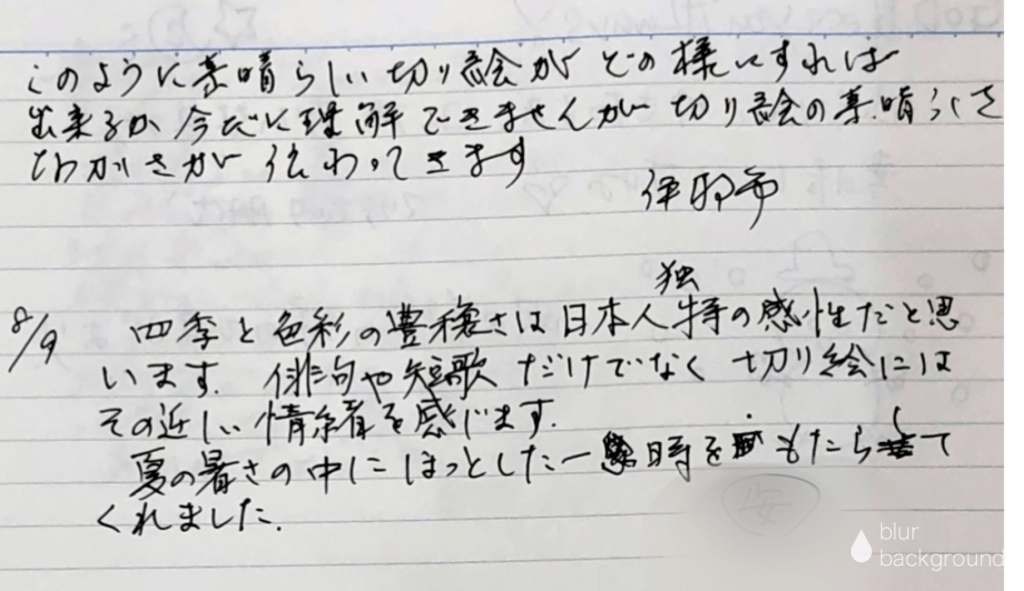 このように素晴らしい切り絵がどの様にすれば
出来るか今だに理解できませんが切り絵の素晴らしさ
が伝わってきます
伊那市
8/9
四季と色彩の豊穣さは日本人独特の感性だと思
います. 俳句や短歌だけでなく切り絵には
その近しい情緒を感じます.
夏の暑さの中にほっとした一時をもたらして
くれました.
blur
background